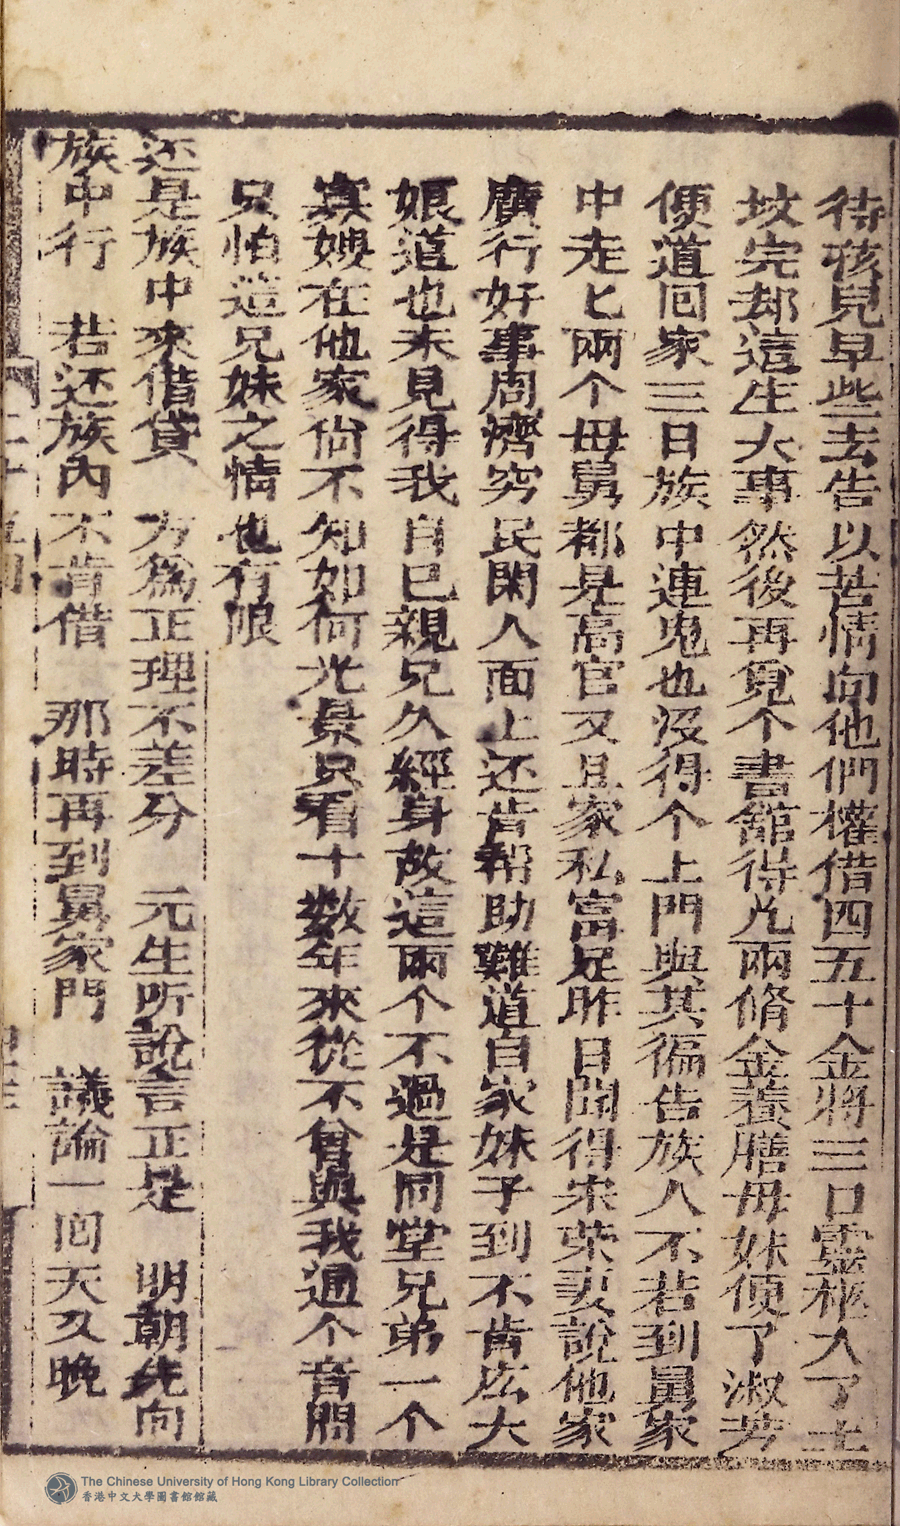 待孩兒早些去告以苦情向他們權借四五十金將三口靈柩入了土
坟完却這生大事然後再覓个書舘得九兩脩金養膳母妹便了淑芳
便道囘家三日族中連鬼也没得个上門與其徧告族人不若到舅家
中走匕兩个母舅都是高官又且家私富足昨日聞得宋荣妻說他家
廣行好事周濟穷民閑人面上还肯帮助難道自家妹子到不肯広大
娘道也未見得我自巳親兄久經身故這兩个不過是同堂兄弟一个
寡嫂在他家尙不知如何光景只看十數年來從不曾與我通个音問
只怕這兄妹之情也有限
还是族中來借貸 方為正理不差分 元生听說言正是 明朝先向
族中行 若还族內不肯借 那時再到舅家門 議論一囘天又晚
The Chinese University of Hong Kong Library Collection
香港中文大學圖書館館藏